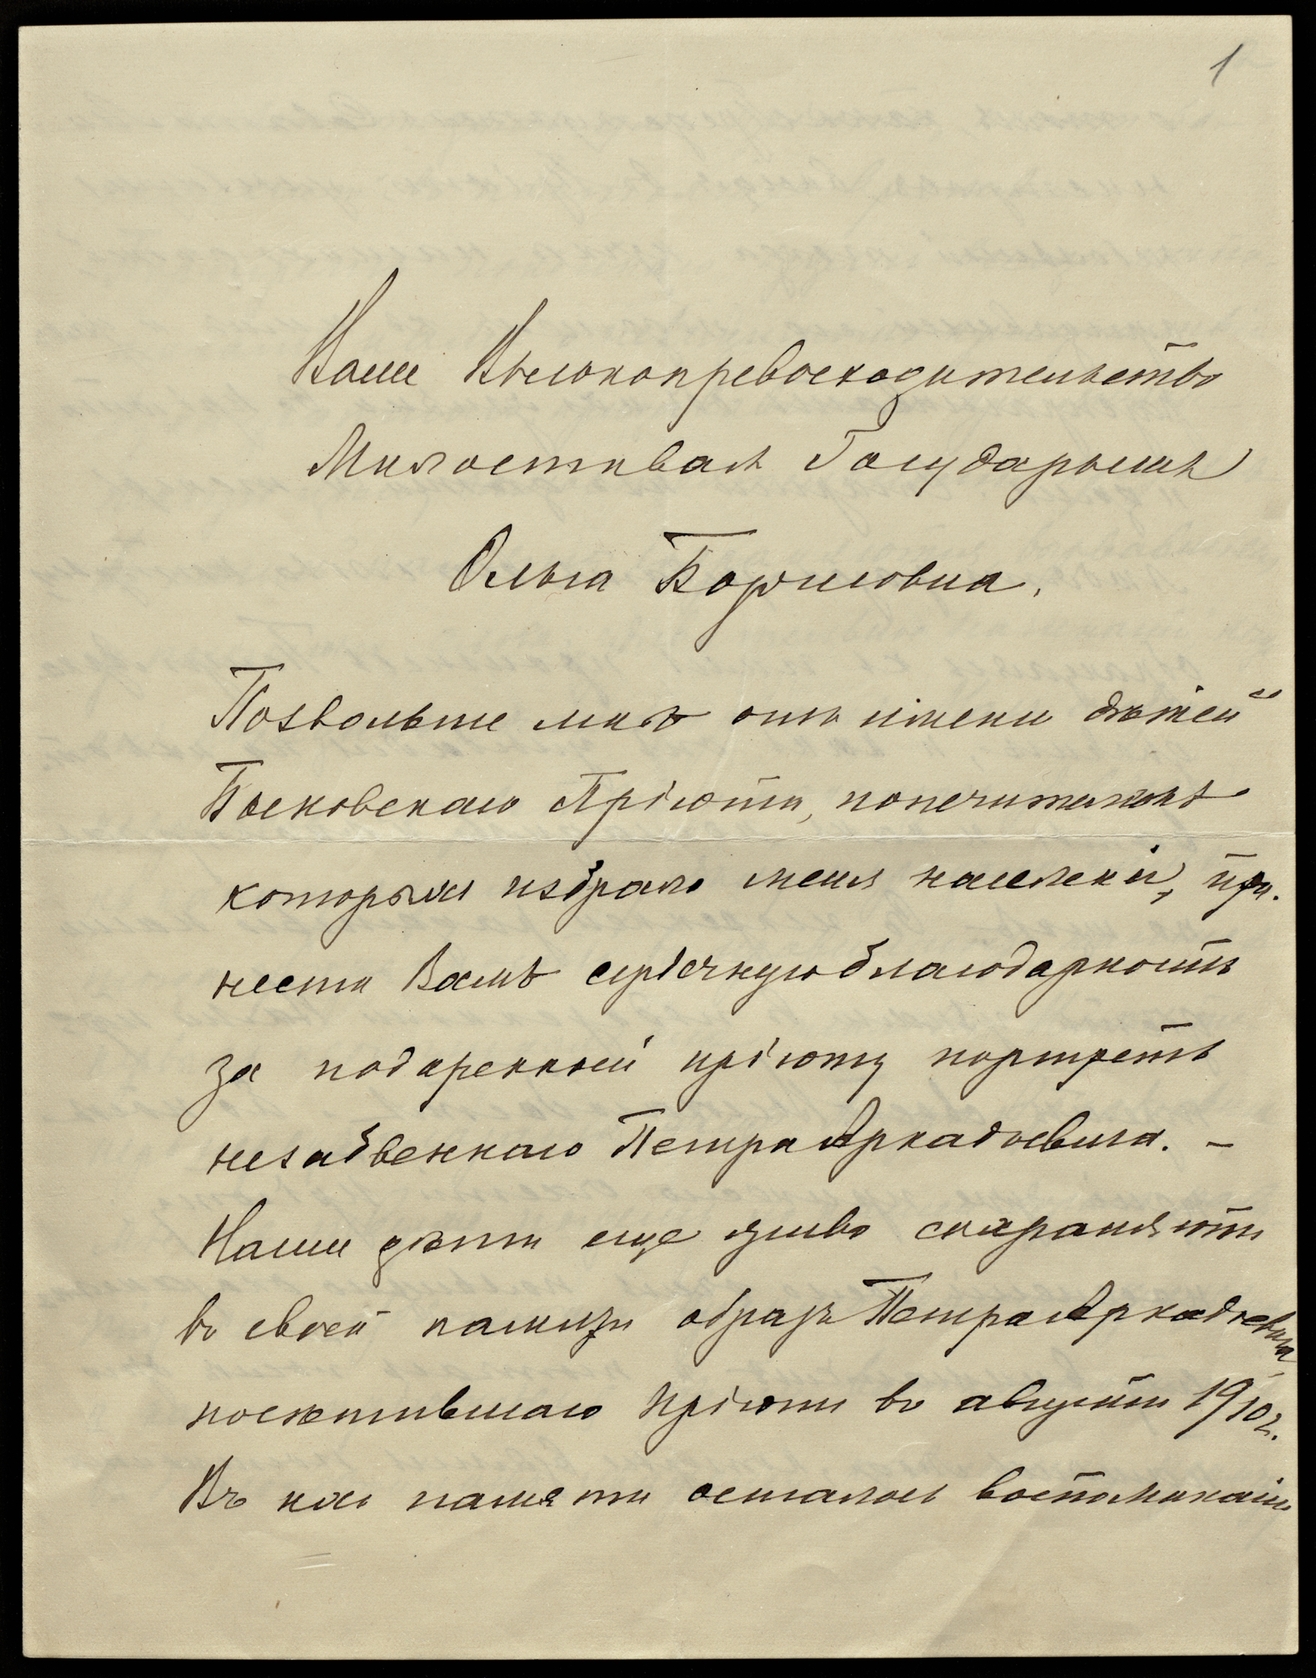 1
Ваше Высокопревосходительство
Милостивая Государыня
Ольга Борисовна,
Позвольте мнѣ отъ имени дѣтей
Пріюта, попечителемъ
которыхъ избрало меня населеніе, при-
нести Вамъ сердечную благодарность
за подаренный пріюту портретъ
незабвеннаго Петра Аркадьевича. —
Наши дѣти еще живо сохраняютъ
въ своей памяти образъ Петра Аркадьевича,
посѣтившаго Пріютъ въ августѣ 1910 г.
Въ ихъ памяти осталось воспоминаніе